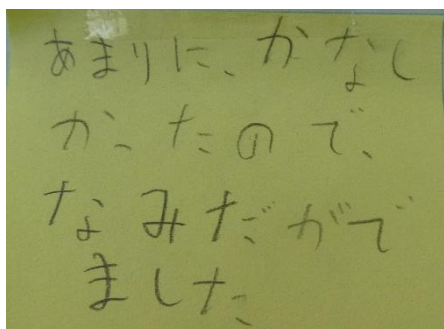 あまりに、かなし
かったので、
なみだがで
ました